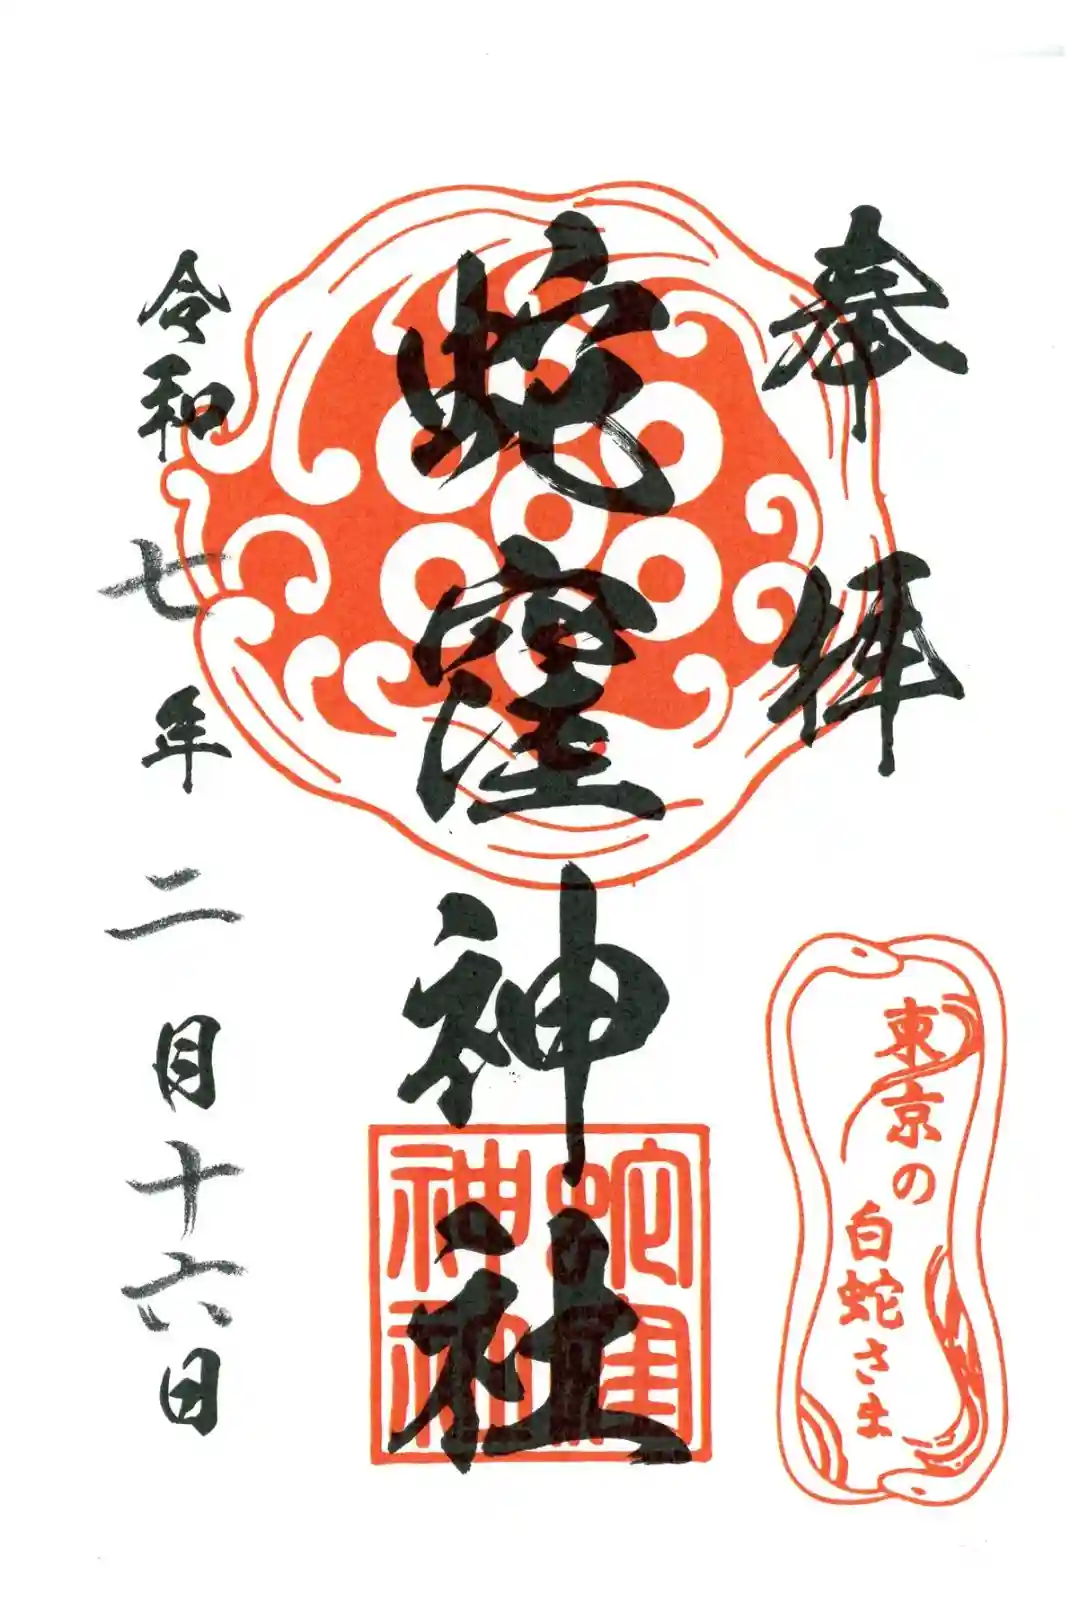 奉拝
東京の
白蛇さま
蛇窪神社
蛇窪
神社
令和七年二月十六日